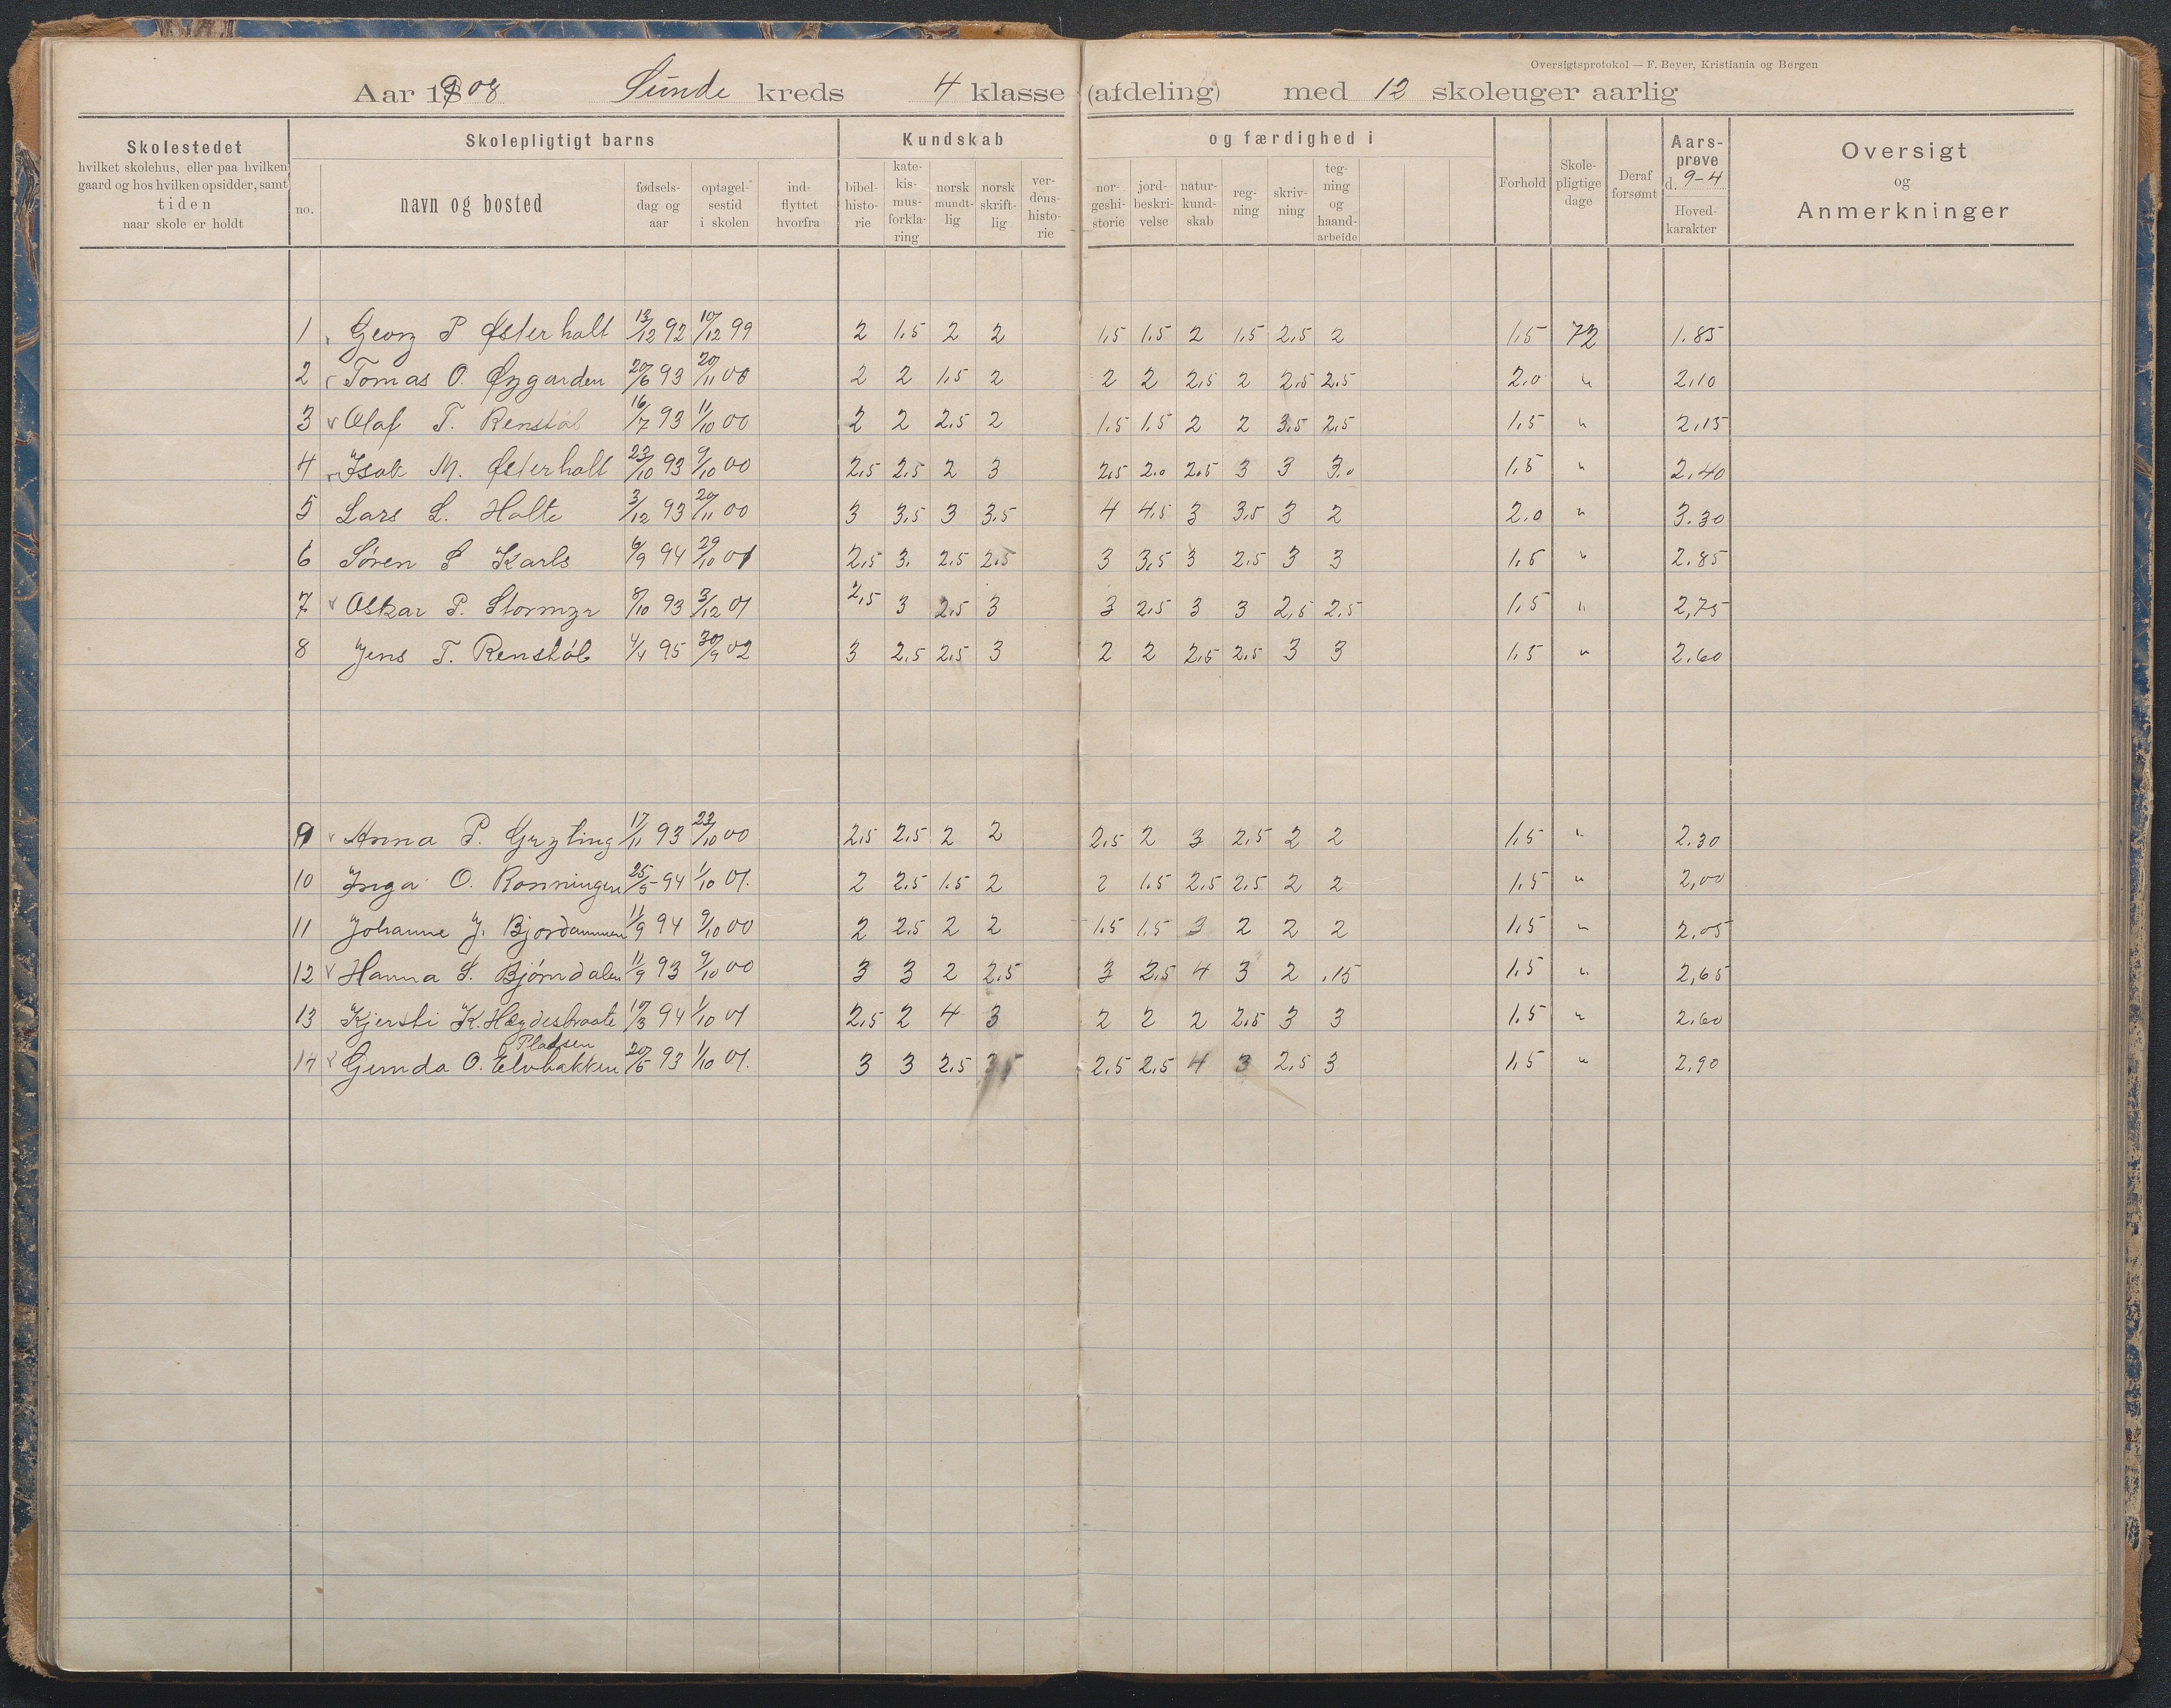 Oversigtsprotokol — F. Beyer, Kristiania og Bergen
Aar 1908 Sunde kreds 4 klasse (afdeling) med 12 skoleuger aarlig
Skolestedet hvilket skolehus, eller paa hvilken gaard og hos hvilken opsidder, samt tiden naar skole er holdt
Skolepligtigt barns
no. navn og bosted fødsels-dag og aar optagel-sestid i skolen ind-flyttet hvorfra
Kundskab og færdighed i
bibel-histo-rie kate-kis-mus-forkla-ring norsk mundt-lig norsk skrift-lig ver-dens-histo-rie nor-geshi-storie jord-beskri-velse natur-kund-skab reg-ning skriv-ning teg-ning og haand-arbeide
Forhold Skole-pligtige dage Deraf forsømt Aars-prøve d. 9-4 Hoved-karakter
Oversigt og Anmerkninger
1 Georg P Østerholt 13/12 92 10/12 99 2 1.5 2 2 1.5 1.5 2 1.5 2.5 2 1.5 72 1.85
2 Tomas O. Øygarden 20/6 93 20/11 00 2 2 1.5 2 2 2 2.5 2 2.5 2.5 2.0 " 2.10
3 v Olaf T. Renstøl 16/7 93 11/10 00 2 2 2.5 2 1.5 1.5 2 2 3.5 2.5 1.5 " 2.15
4 Isak M. Østerholt 23/10 93 9/10 00 2.5 2.5 2 3 2.5 2.0 2.5 3 3 3.0 1.5 " 2.40
5 Lars L. Holte 3/12 93 20/11 00 3 3.5 3 3.5 4 4.5 3 3.5 3 2 2.0 " 3.30
6 Søren S Karls 6/9 94 29/10 01 2.5 3. 2.5 2.5 3 3.5 3 2.5 3 3 1.5 " 2.85
7 v Oskar P. Stormyr 8/10 93 3/12 01 2.5 3 2.5 3 3 2.5 3 3 2.5 2.5 1.5 " 2,75
8 Jens T. Renstøl 4/4 95 30/9 02 3 2.5 2.5 3 2 2 2.5 2.5 3 3 1.5 " 2.60
9 v Anna P. Gryting 17/11 93 23/10 00 2.5 2.5 2 2 2.5 2 3 2.5 2 2 1.5 " 2.30
10 Inga O. Rønningen 25/5 94 1/10 01. 2 2.5 1.5 2 2 1.5 2.5 2.5 2 2 1.5 " 2,00
11 Johanne J. Bjordammen 11/9 94 9/10 00 2 2.5 2 2 1.5 1.5 3 2 2 2 1.5 " 2.05
12 v Hanna S. Bjørndalen 11/9 93 9/10 00 3 3 2 2.5 3 2.5 4 3 2 .15 1.5 " 2,65
13 Kjersti K. Høydestraate 17/3 94 1/10 01 2.5 2 4 3 2 2 2 2.5 3 3 1.5 " 2.60
Pladsen
14 v Gunda O. Elvbakken 20/5 93 1/10 01. 3 3 2.5 3.5 2.5 2.5 4 3 2.5 3 1.5 " 2.90